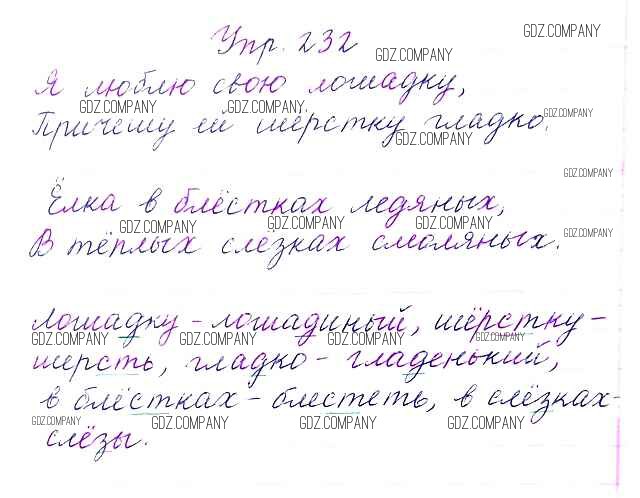 Упр. 232
GDZ.COMPANY
GDZ.COMPANY
Я люблю свою лошадку,
GDZ.COMPANY GDZ.COMPANY
Причешу ей шёрстку гладко.
GDZ.COMPANY
GDZ.COMPANY
GDZ.COMPANY
Ёлка в блёстках ледяных,
GDZ.COMPANY GDZ.COMPANY GDZ.COMPANY
В тёплых слёзках смоляных.
GDZ.COMPANY
Лошадку - лошадиный, шёрстку -
GDZ.COMPANY GDZ.COMPANY GDZ.COMPANY GDZ.COMPANY
шерсть, гладко - гладенький,
в блёстках - блестеть, в слёзках -
GDZ.COMPANY GDZ.COMPANY GDZ.COMPANY GDZ.COMPANY
слёзы.